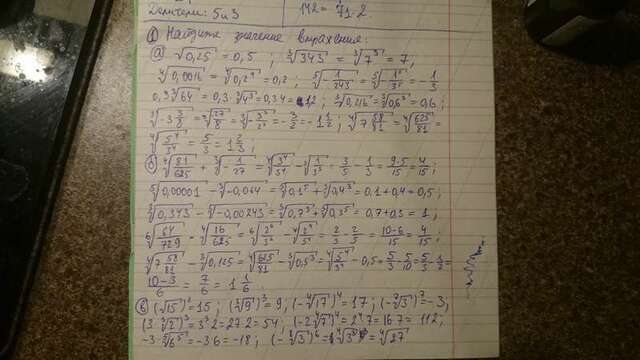 Делители: 5 и 3 142 = 71·2
① Найдите значение выражения:
а) √0,25 = 0,5 ; ³√343 = ³√7³ = 7,
⁴√0,0016 = ⁴√0,2⁴ = 0,2 ; ⁵√-1/243 = ⁵√-1⁵/3⁵ = -1/3
0,3 ³√64 = 0,3·³√4³ = 0,3·4 = 1,2 ; ³√0,216 = ³√0,6³ = 0,6 ;
³√-3 3/8 = ³√27/8 = ³√-3³/2³ = -3/2 = -1 1/2 ; ⁴√7 58/81 = ⁴√625/81 =
⁴√5⁴/3⁴ = 5/3 = 1 2/3 ;
б) ⁴√81/625 + ³√1/27 = ⁴√3⁴/5⁴ - ³√1/3³ = 3/5 - 1/3 = 9-5/15 = 4/15 ;
⁵√0,00001 - ³√-0,064 = ⁵√0,1⁵ + ³√0,4³ = 0,1 + 0,4 = 0,5 ;
³√0,343 - ⁵√-0,00243 = ³√0,7³ + ⁵√0,3⁵ = 0,7 + 0,3 = 1,
⁶√64/729 - ⁴√16/625 = ⁶√2⁶/3⁶ - ⁴√2⁴/5⁴ = 2/3 - 2/5 = 10-6/15 = 4/15 ;
⁴√7 58/81 - ³√0,125 = ⁴√625/81 - ³√0,5³ = ⁴√5⁴/3⁴ - 0,5 = 5/3 - 5/10 = 5/3 - 1/2 =
10-3/6 = 7/6 = 1 1/6
в) (-√15)² = 15 ; (³√9)³ = 9, (-⁴√17)⁴ = 17 ; (-⁷√3)⁷ = -3,
(3·³√2)³ = 3³·2 = 27·2 = 54, (-2 ⁴√7)⁴ = 2⁴·7 = 16·7 = 112 ;
-3·⁵√6⁵ = -3·6 = -18 ; (-⁸√3)⁶ = ⁴√3³ = ⁴√27